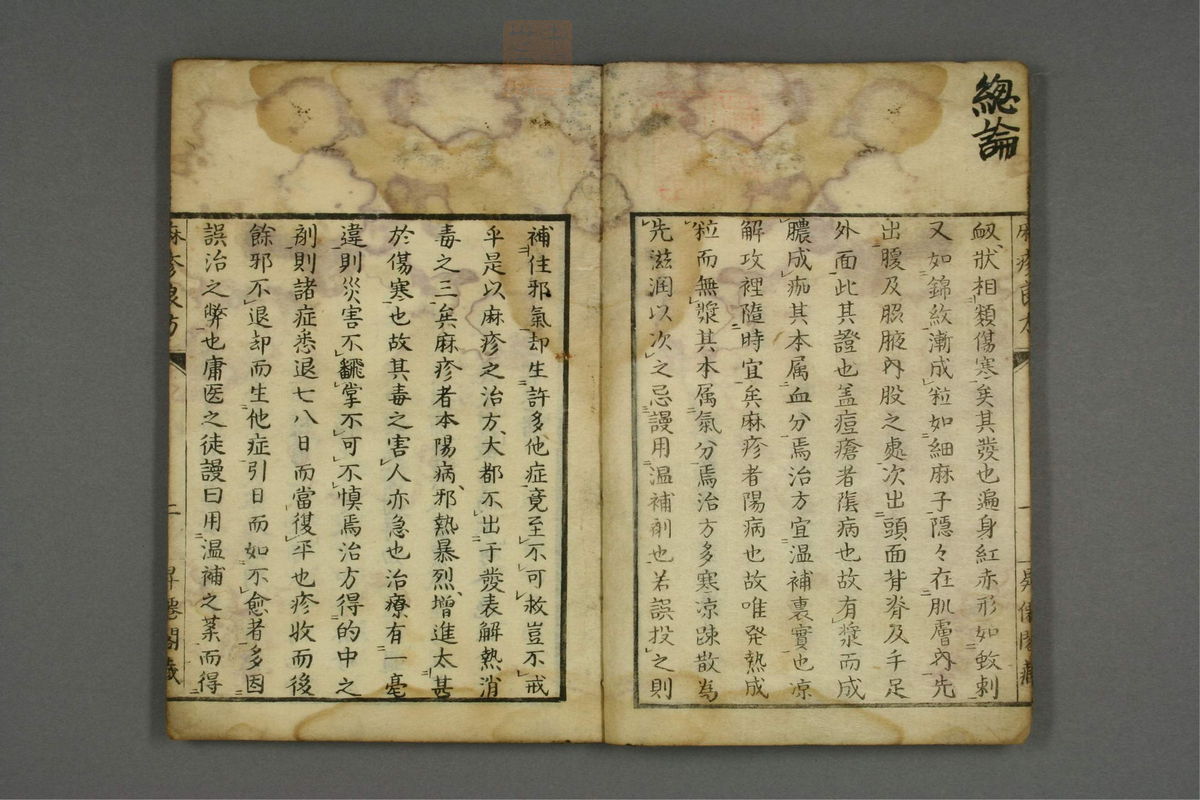 總論
衂、狀相類傷寒矣其發也遍身紅赤形如蚊刺
又如錦紋漸成粒如細麻子隱々在肌膚內先
出腹及脇腋內股之處次出頭面背脊及手足
外面此其證也盖痘瘡者陰病也故有漿而成
膿成痂其本属血分焉治方宜温補裏實也凉
解攻裡隨時宜矣麻疹者陽病也故唯発熱成
粒而無漿其本属氣分焉治方多寒涼踈散為
先滋潤以次之忌謾用温補剤也若誤投之則
補住邪氣却生許多他症竟至不可救豈不戒
乎是以麻疹之治方、大都不出于發表解熱消
毒之三矣麻疹者本陽病、邪熱暴烈、增進太甚
於傷寒也故其毒之害人亦急也治療有一毫
違則災害不飜掌不可不慎焉治方得的中之
剤則諸症悉退七八日而當復平也疹收而後
餘邪不退却而生他症引日而如不愈者多因
誤治之弊也庸医之徒謾曰用温補之薬而得
麻疹良方
二